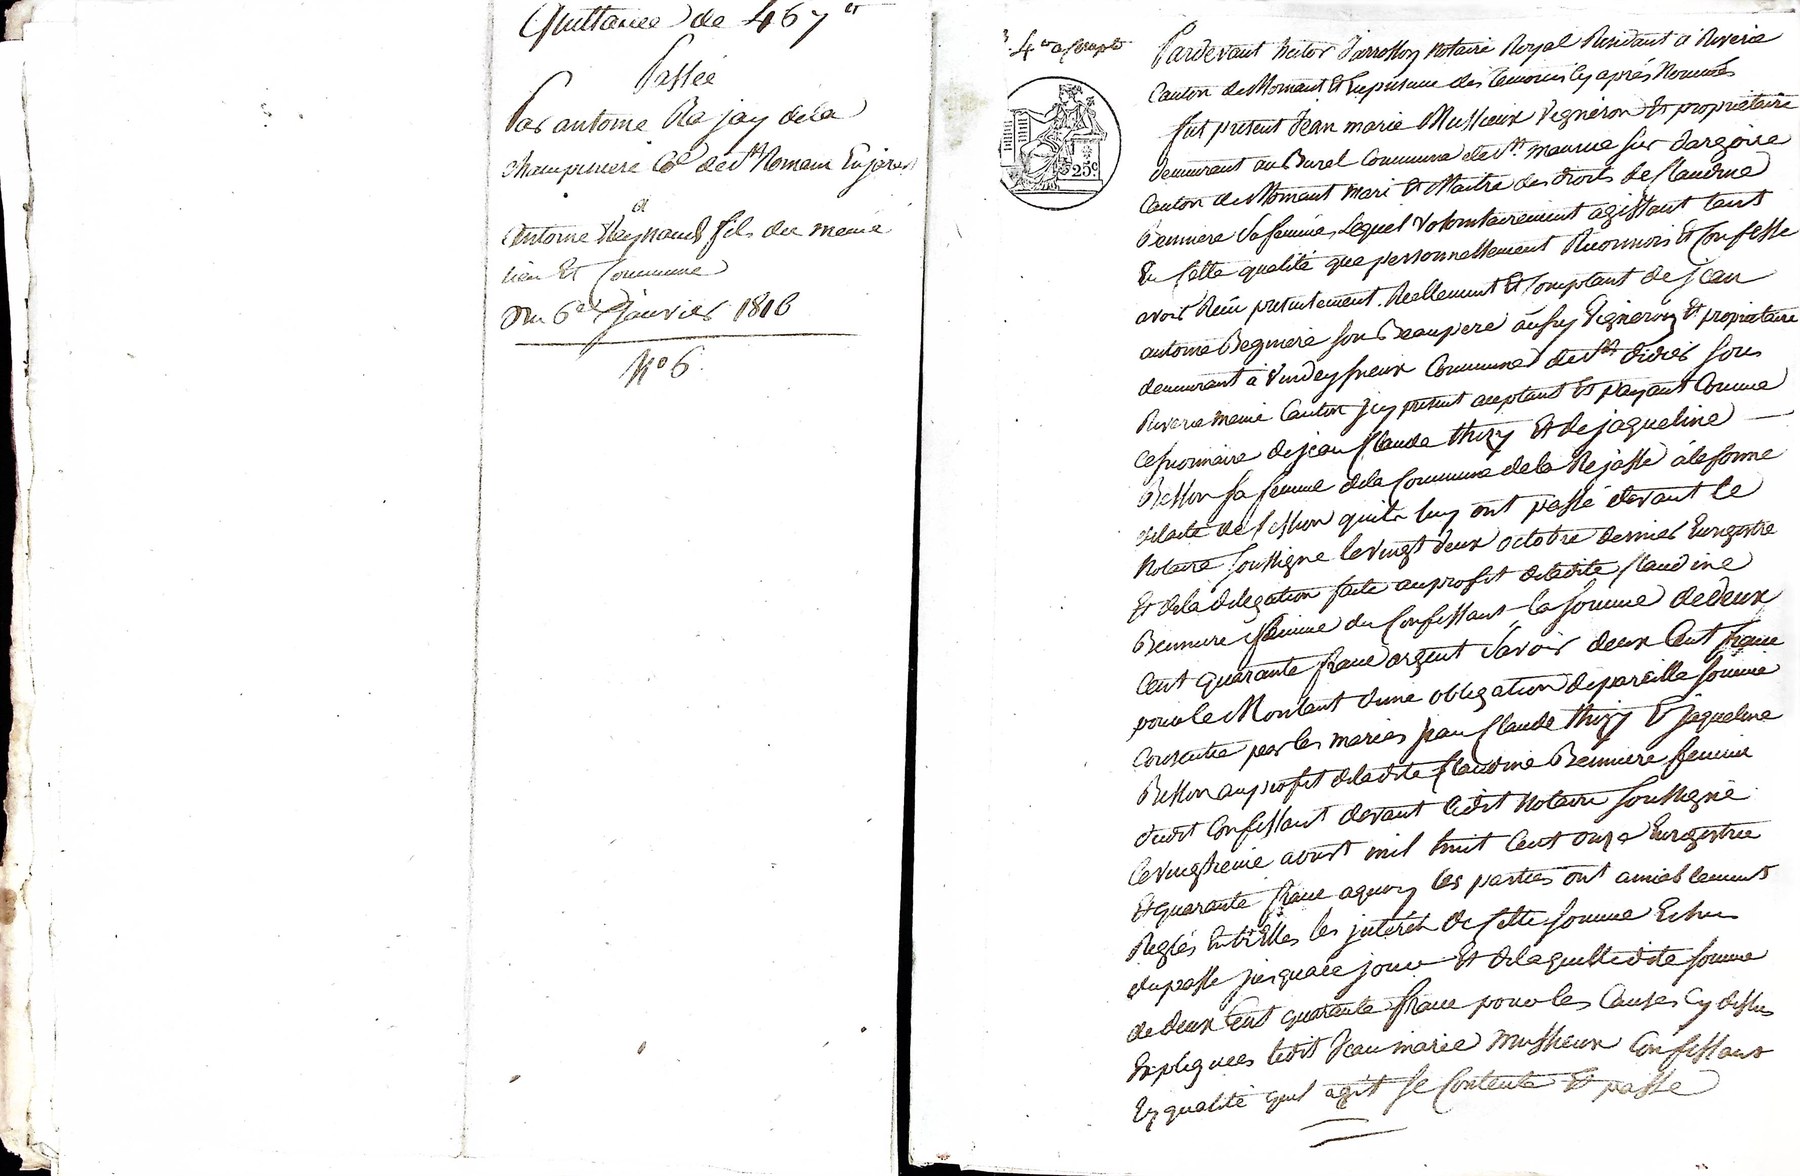 Quittance de 467 tt
Passée
Par antoine Rajay de la
champinieré Co de St Romain En jarest
et
Antoine Reynaud fils du meme
lieu Et Commune
Du 6e janvier 1816
No 6.
4e a Compte
25c
Pardevant hector Jarrosson notaire Royal Residant a Riverie
Canton de Mornant Et En présence des temoins Cy après Nommés
fut présent Jean marie Mussieux Vigneron Et proprietaire
demeurant au Burel Commune de St maurice sur dargoire
Canton de Mornant mari Et Maitre des droits de Claudine
sa femme, Lequel Volontairement agissant tant
En Cette qualité que personnellement Reconnois Et Confesse
avoir Reçu presentement Reellement Et Comptant de jean
antoine son Beaupere aussy Vigneron Et proprietaire
demeurant a Commune de St didier sous
Riverie meme Canton jcy présent aceptant Et payant Comme
Cessionnaire de jean Claude thizy Et de jaqueline
Besson sa femme de la Commune de la Rajasse à la forme
de lacte de Cession quils luy ont passé devant le
Notaire soussigné le vingt deux octobre dernier Enregistré
Et de la délégation faite au profit de ladite Claudine
femme du Confessant la somme de deux
Cent quarante franc argent savoir deux Cent franc
pour le Montant dune obligation de pareille somme
Consentie par les maries jean Claude thizy Et jaqueline
Besson au profit de ladite Claudine femme
dudit Confessant devant ledit Notaire soussigné
le vingtieme aoust mil huit Cent onze Enregistrée
Et quarante franc a quoy les parties ont amiablement
Reglés Entr'Elles les jnterêts de Cette somme Echus
du passé jusqua ce jour Et de laquelle dite somme
de deux Cent quarante franc pour les Causes Cy dessus
Expliquées ledit Jean marie Mussieux Confessant
En qualité quil agit se Contente Et passe